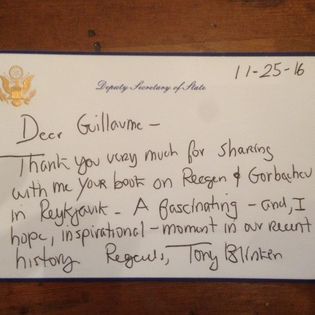 11-25-16
Deputy Secretary of State
Dear Guillaume -
Thank you very much for sharing
with me your book on Reagan & Gorbachev
in Reykjavik - A fascinating - and, I
hope, inspirational - moment in our recent
history. Regards, Tony Blinken